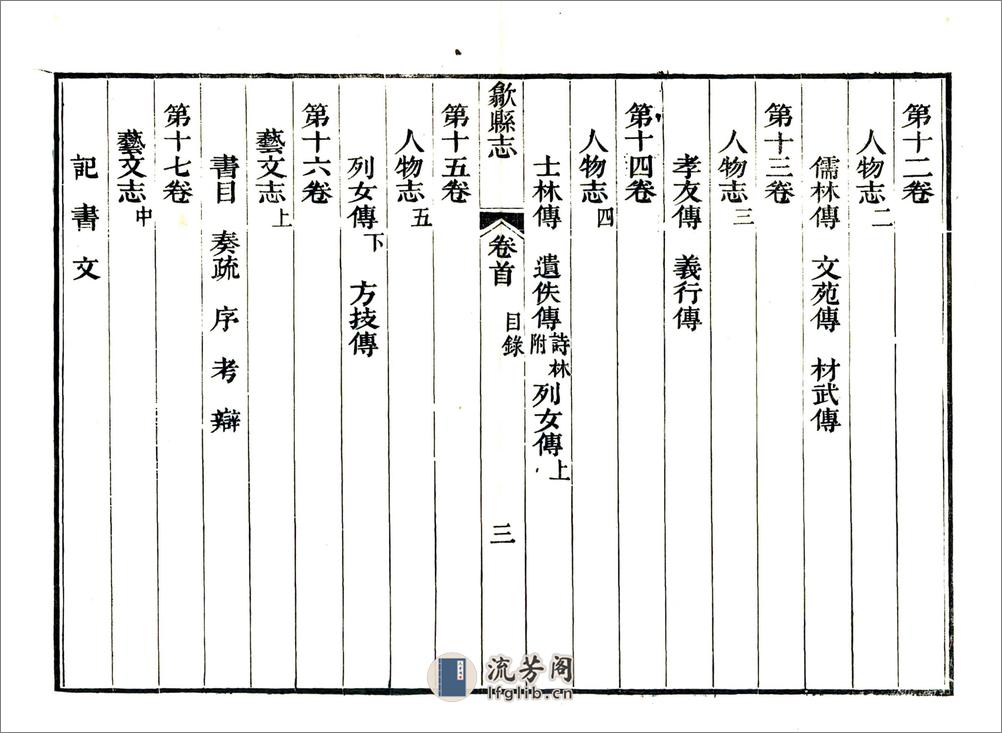 第十二卷
人物志二
儒林傳 文苑傳 材武傳
第十三卷
人物志三
孝友傳 義行傳
第十四卷
人物志四
士林傳 遺佚傳詩林附 列女傳上
歙縣志 卷首 目錄 三
第十五卷
人物志五
列女傳下 方技傳
第十六卷
藝文志上
書目 奏疏 序 考 辯
第十七卷
藝文志中
記 書 文
流芳阁
lfglib.cn